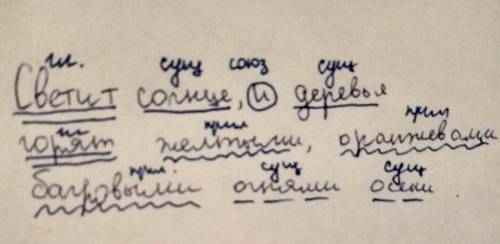 гл. сущ союз сущ
Светит солнце, и деревья
гл прил прил
горят желтыми, оранжевами
прил. сущ сущ
багровыми огнями осени.